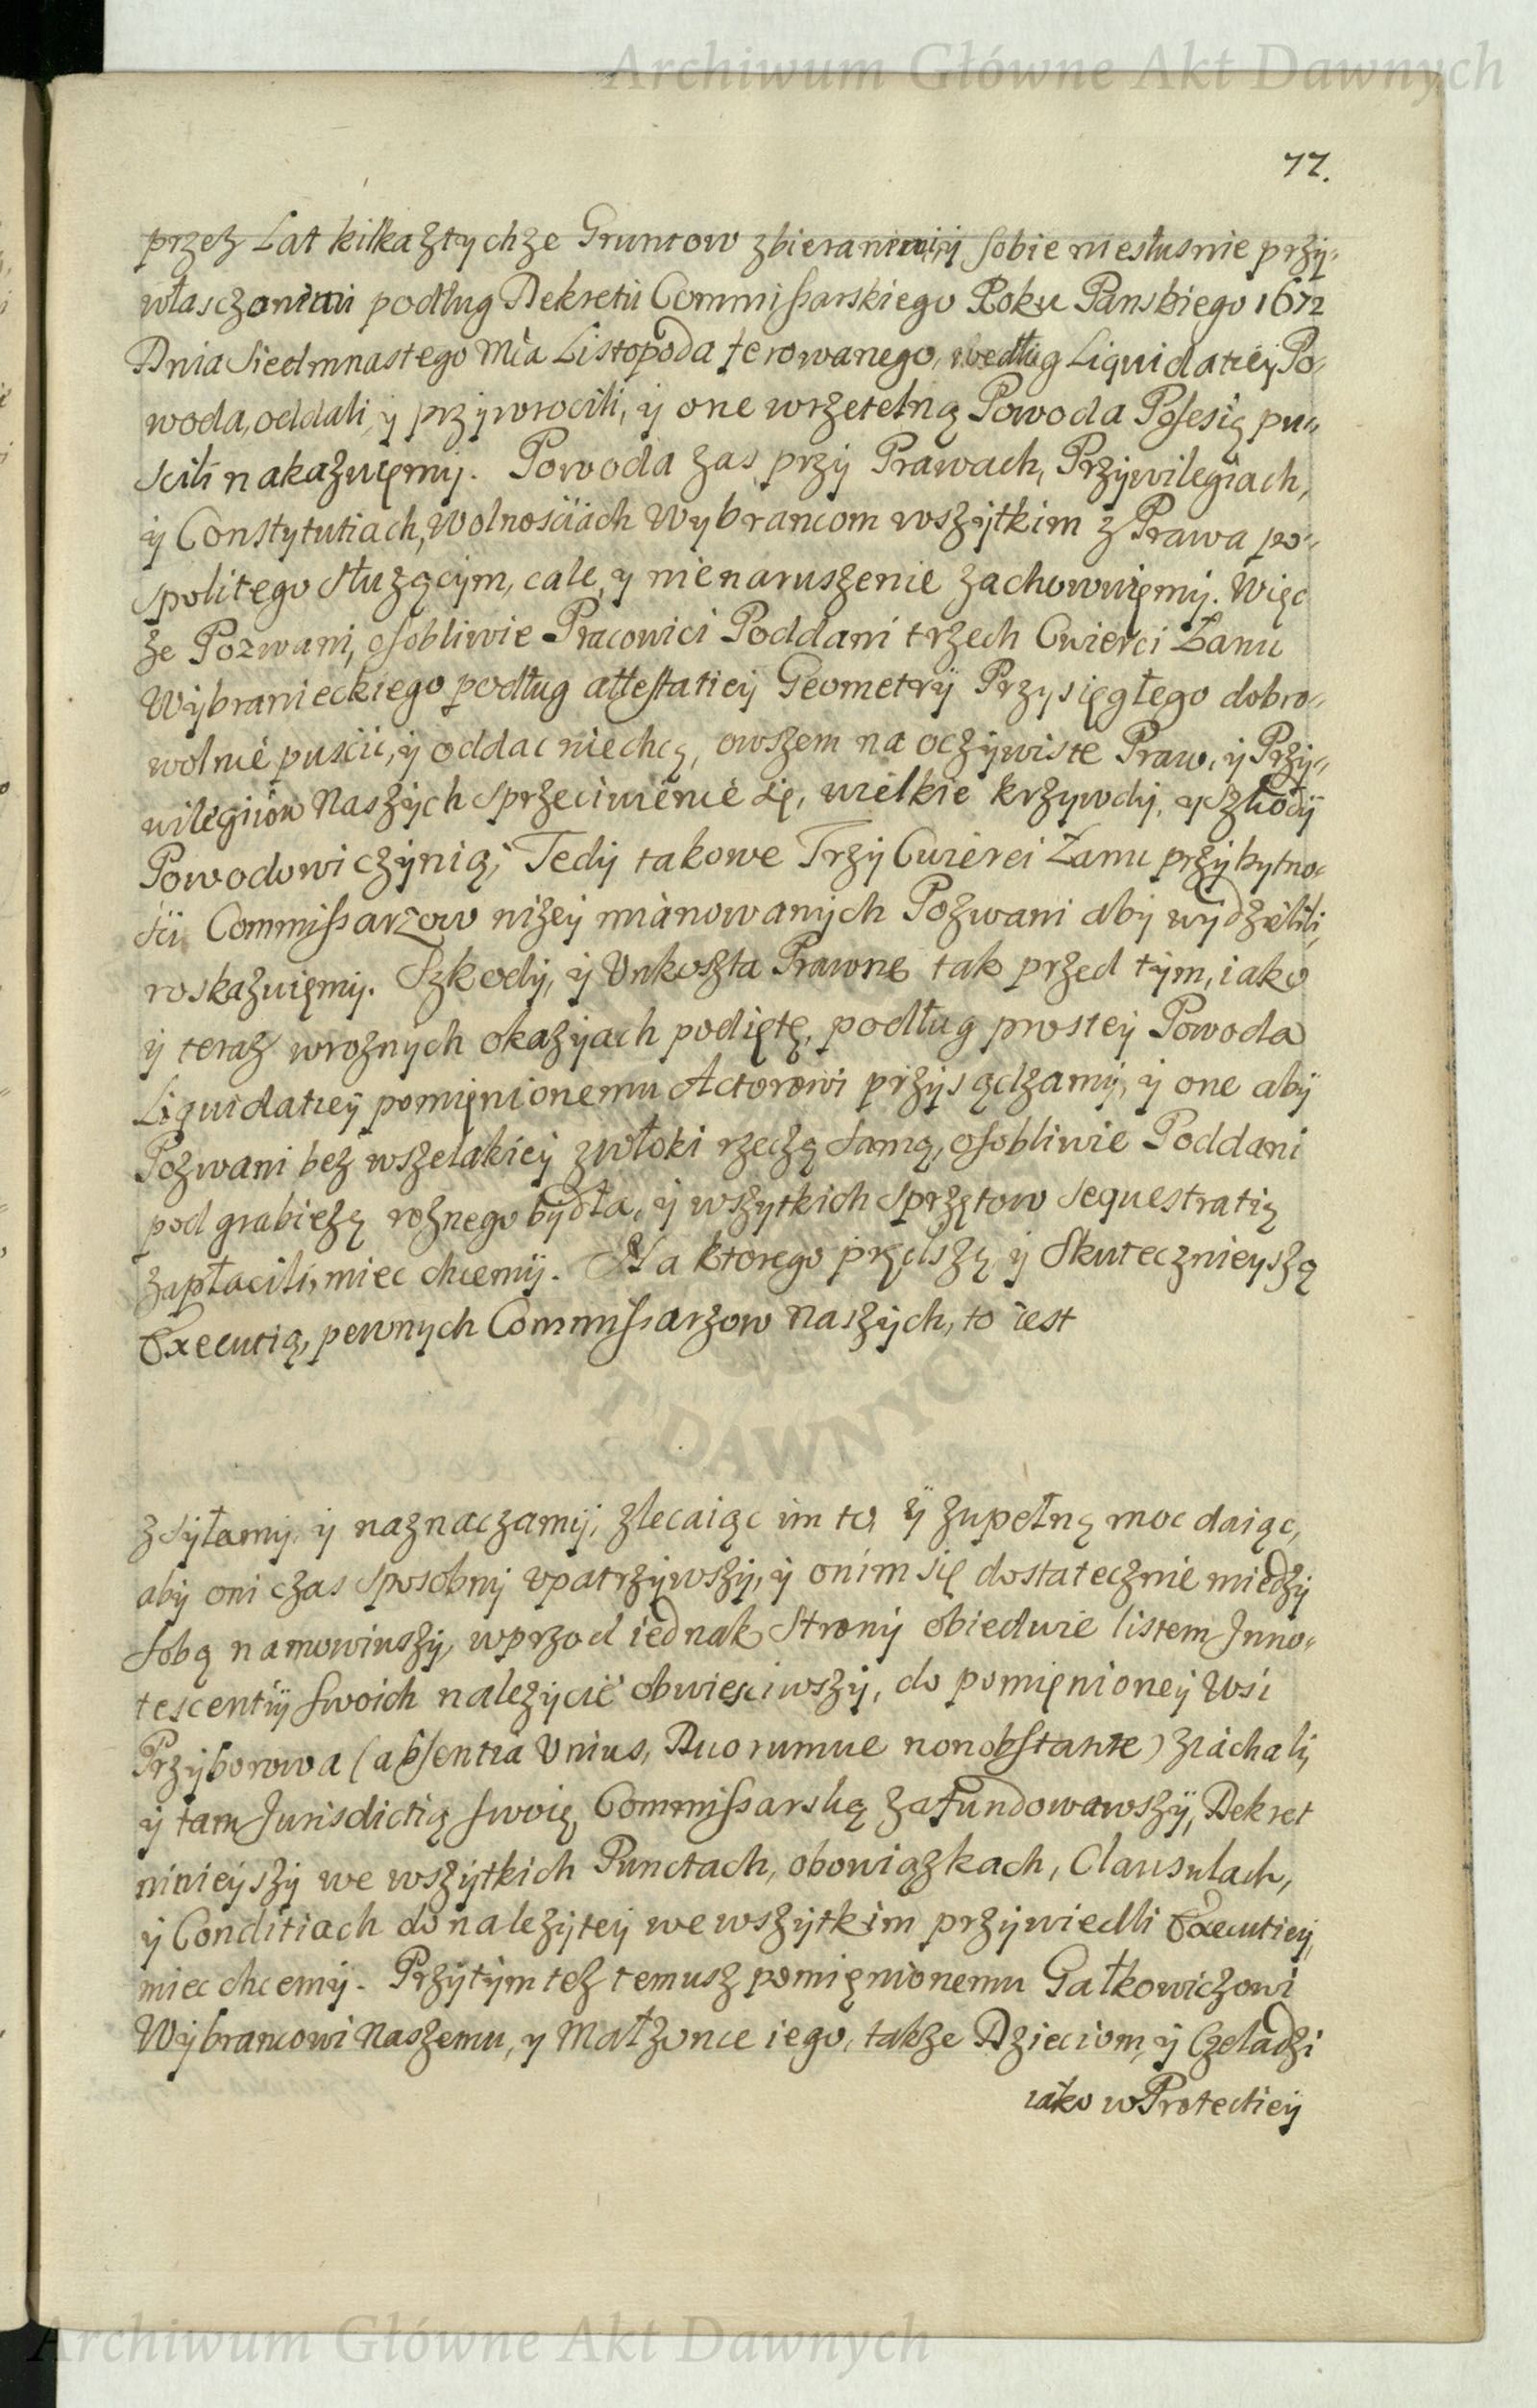 Archiwum Główne Akt Dawnych
77.
przez Lat kilka ztychze Gruntow zbieranimi, y sobie niesłusnie przy-
własczonimi podług Dekretu Commissarskiego Roku Panskiego 1672
Dnia Siedmnastego Mca Listopada ferowanego, według Liquidatiey Po-
woda, oddali, y przywrocili, y one wrzetelną Powoda Posesią pu-
scili nakazuięmy. Powoda zas przy Prawach, Przywilegiach,
y Constytutiach, Wolnosciach Wybrancom wszytkim z Prawa po-
spolitego służącym, cale, y nienaruszenie zachowuięmy. Więc
ze Pozwani, osobliwie Pracowici Poddani trzech Cwierci Łanu
Wybranieckiego podług attestatiey Geometry Przysięgłego dobro-
wolnie puscic, y oddac niechcą, owszem na oczywiste Praw, y Przy-
wilegiow Naszych sprzeciwienie się, wielkie krzywdy, y szkody
Powodowi czynią, Tedy takowe Trzy Cwierci Łanu przy bytno-
sci Commissarzow nizey mianowanych Pozwani aby wydzielili,
roskazuięmy. Szkody, y Unkoszta Prawne tak przed tym, iako
y teraz wroznych okazyach podięte, podług prostey Powoda
Liquidatiey pomięnionemu Actorowi przysądzamy, y one aby
Pozwani bez wszelakiey zwłoki rzeczą samą, osobliwie Poddani
pod grabieżą roznego bydła, y wszytkich sprzętow sequestratią
zapłacili, miec chcemy. Na ktorego prędszą y skutecznieyszą
Executią, pewnych Commissarzow Naszych, to iest
zsyłamy, y naznaczamy, zlecaiąc im to, y zupełną moc daiąc,
aby oni czas sposobny upatrzywszy, y onim się dostatecznie miedzy
sobą namowiwszy, wprzod iednak Strony obiedwie listem Inno-
tescentiy swoich nalezycie obwiesciwszy, do pomięnioney Wsi
Przyborowa (absentia Unius, Duorumue nonobstante) ziachali,
y tam Jurisdictią swoię Commissarską zafundowawszy, Dekret
ninieyszy we wszytkich Punctach, obowiązkach, Clausulach,
y Conditiach do nalezytey we wszytkim przywiedli Executiey,
miec chcemy. Przytym tez temusz pomięnionemu Gałkowiczowi
Wybrancowi Naszemu, y Małzonce iego, takze Dzieciom, y Czeladzi
iako w Protectiey
Archiwum Główne Akt Dawnych